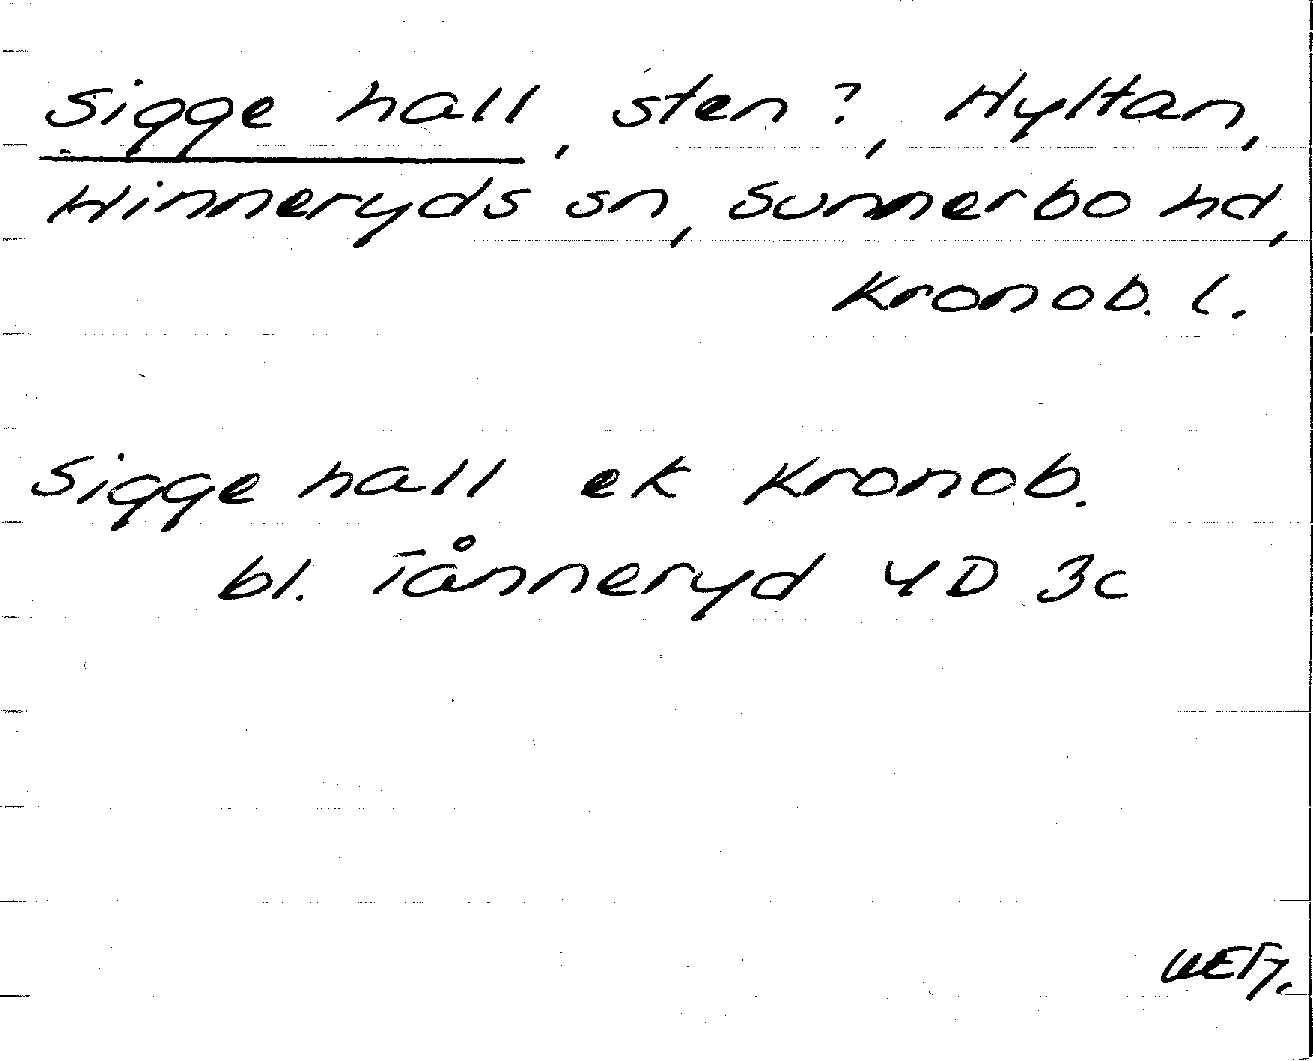 Sigge hall, sten?, Hyltan,
Hinneryds sn, Sunnerbo hd,
Kronob. l.
Sigge hall ek Kronob.
bl. Tånneryd 4D 3c